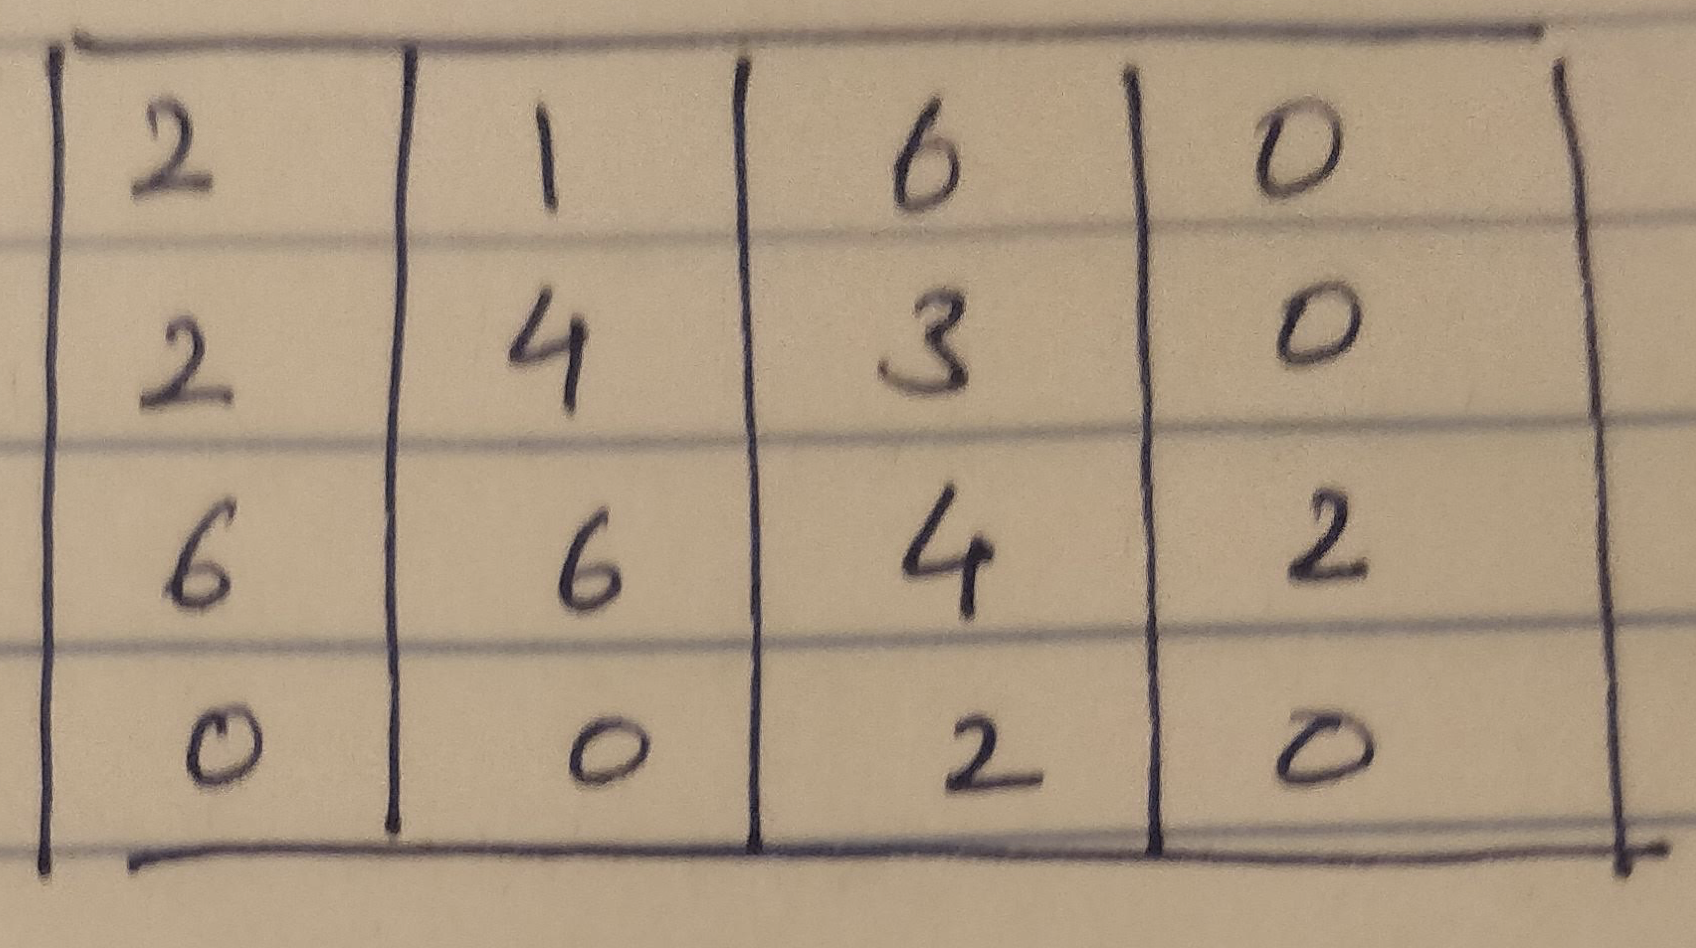 2 1 6 0
2 4 3 0
6 6 4 2
0 0 2 0